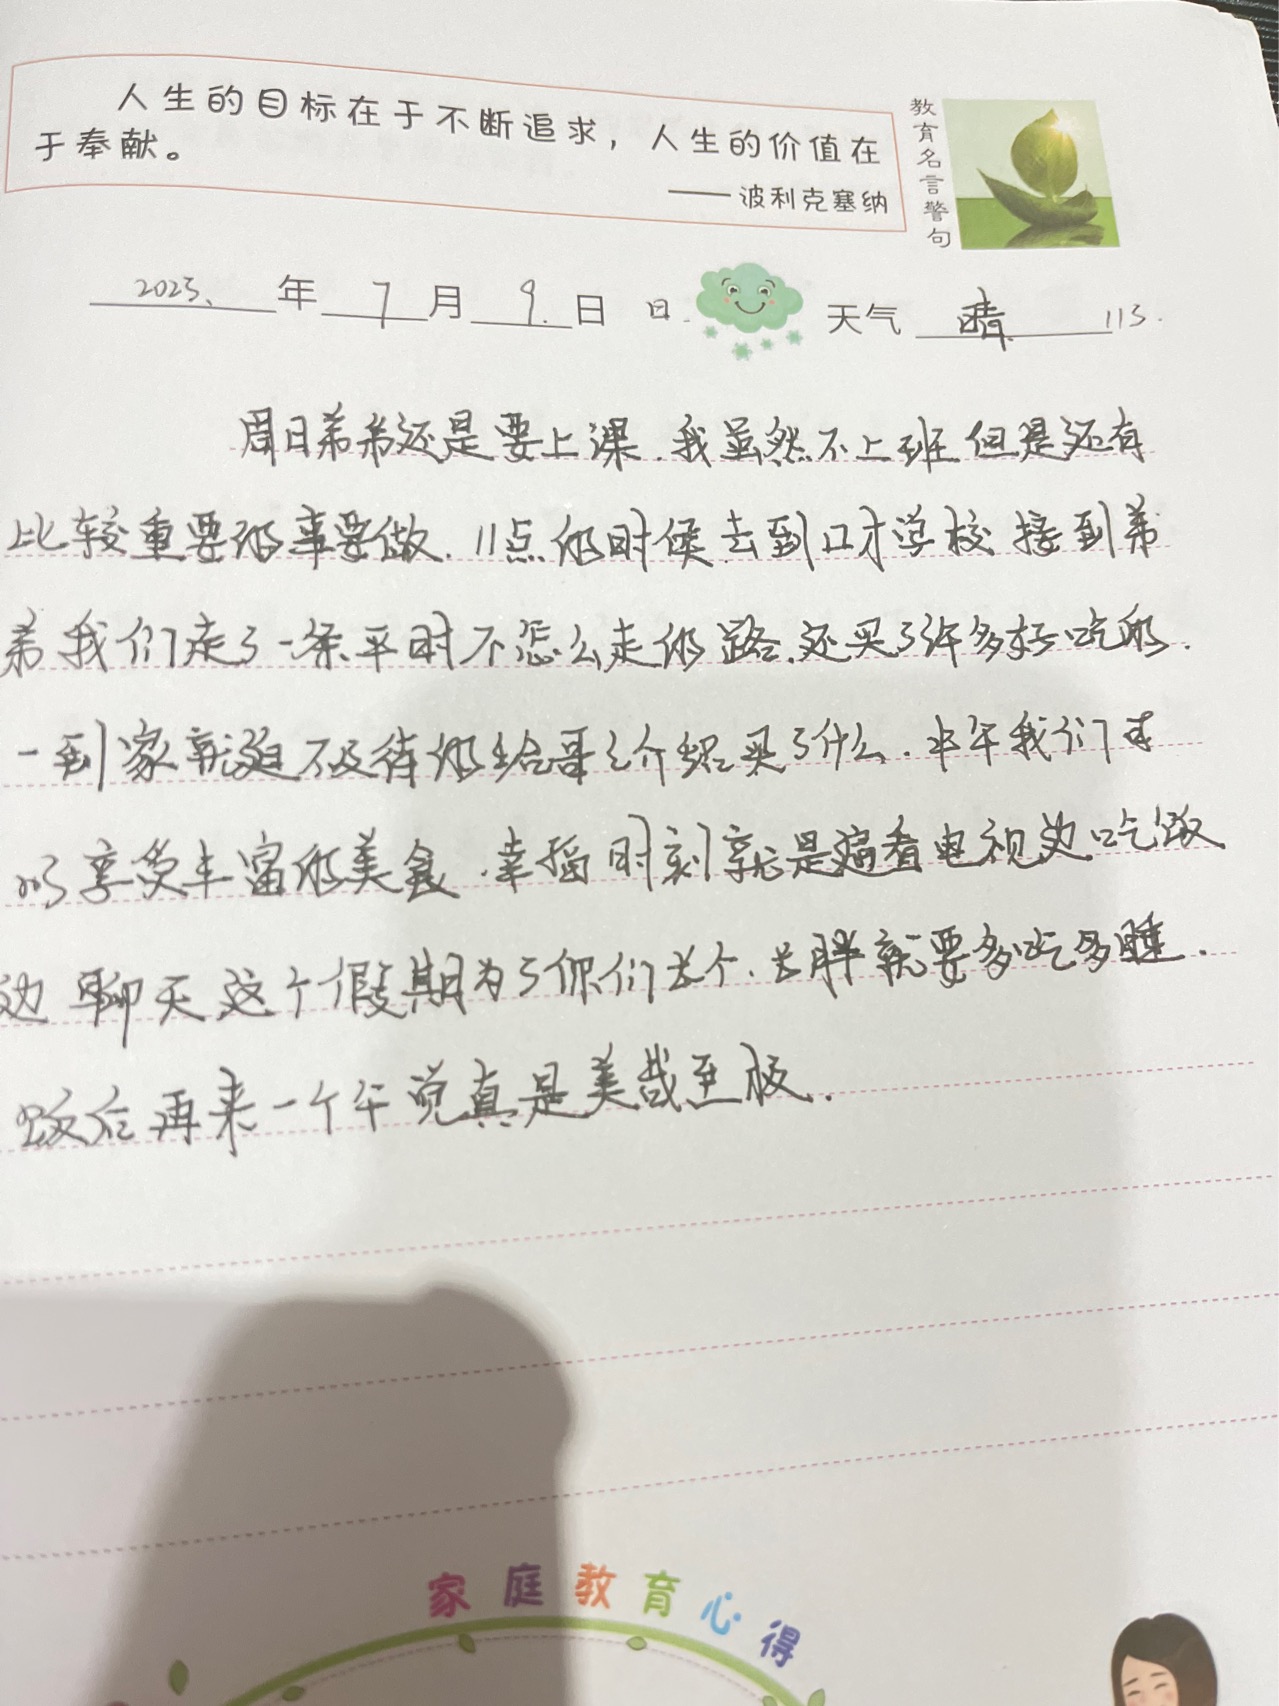 人生的目标在于不断追求，人生的价值在
于奉献。
——波利克塞纳
教育名言警句
2023、年 7 月 9. 日 日. 天气 晴 113.
周日弟弟还是要上课.我虽然不上班但是还有
比较重要的事要做.11点的时候去到口才学校接到弟
弟我们走了一条平时不怎么走的路.还买了许多好吃的.
一到家就迫不及待的给哥哥介绍买了什么.中午我们才
以享受丰富的美食.幸福时刻就是边看电视边吃饭
边聊天这个假期为了你们长个.长胖就要多吃多睡.
饭后再来一个午觉真是美哉至极.
家庭教育心得